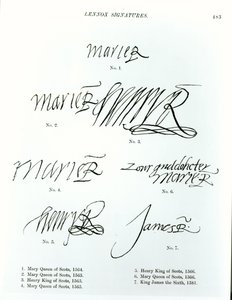 LENNOX SIGNATURES.
marieR
No. 1.
marieR
No. 2.
henry R
No. 3.
marieR
No. 4.
henry R
No. 5.
marieR
No. 6.
James R
No. 7.
1. Mary Queen of Scots, 1564.
2. Mary Queen of Scots, 1565.
3. Henry King of Scots, 1565.
4. Mary Queen of Scots, 1565.
5. Henry King of Scots, 1566.
6. Mary Queen of Scots, 1566.
7. King James the Sixth, 1581.